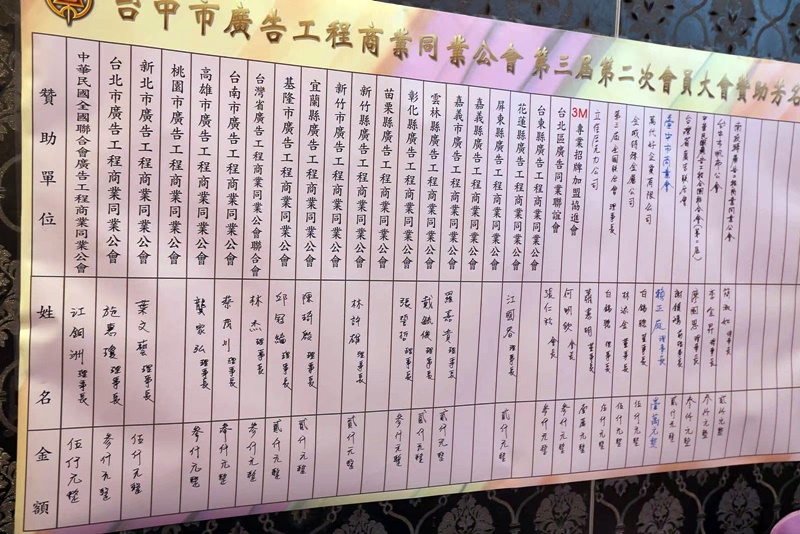 台中市廣告工程商業同業公會 第三屆第二次會員大會贊助芳名
贊助單位
姓名
金額
中華民國全國聯合會廣告工程商業同業公會
江銅洲 理事長
伍仟元整
台北市廣告工程商業同業公會
施惠瓊 理事長
參仟元整
新北市廣告工程商業同業公會
葉文藝 理事長
伍仟元整
桃園市廣告工程商業同業公會
高雄市廣告工程商業同業公會
龔家弘 理事長
參仟元整
台南市廣告工程商業同業公會
蔡茂川 理事長
參仟元整
台灣省廣告工程商業同業公會聯合會
林杰 理事長
參仟元整
基隆市廣告工程商業同業公會
邱冠綸 理事長
貳仟元整
宜蘭縣廣告工程商業同業公會
陳琦 理事長
貳仟元整
新竹市廣告工程商業同業公會
新竹縣廣告工程商業同業公會
林許雄 理事長
貳仟元整
苗栗縣廣告工程商業同業公會
彰化縣廣告工程商業同業公會
張 理事長
參仟元整
雲林縣廣告工程商業同業公會
戴毓俊 理事長
貳仟元整
嘉義市廣告工程商業同業公會
羅嘉貴 理事長
貳仟元整
嘉義縣廣告工程商業同業公會
屏東縣廣告工程商業同業公會
花蓮縣廣告工程商業同業公會
江國春 理事長
貳仟元整
台東縣廣告工程商業同業公會
台北區廣告同業聯誼會
張仁政 會長
參仟元整
3M專業招牌加盟協進會
何明欽 會長
參仟元整
公司
蕭憲明 董事長
壹萬元整
第三屆全國聯合會 理事長
白錫聰 理事長
伍仟元整
金成特殊金屬公司
林添金 董事長
伍仟元整
萬代好企業有限公司
白錫聰 董事長
伍仟元整
臺中市商業會
賴三庭 理事長
壹萬元整
台灣省廣告聯合會
理事長
貳仟元整
理事長
參仟元整
台中市帆布公會
李金昇 理事長
參仟元整
商業同業公會
簡淑如 理事長
貳仟元整